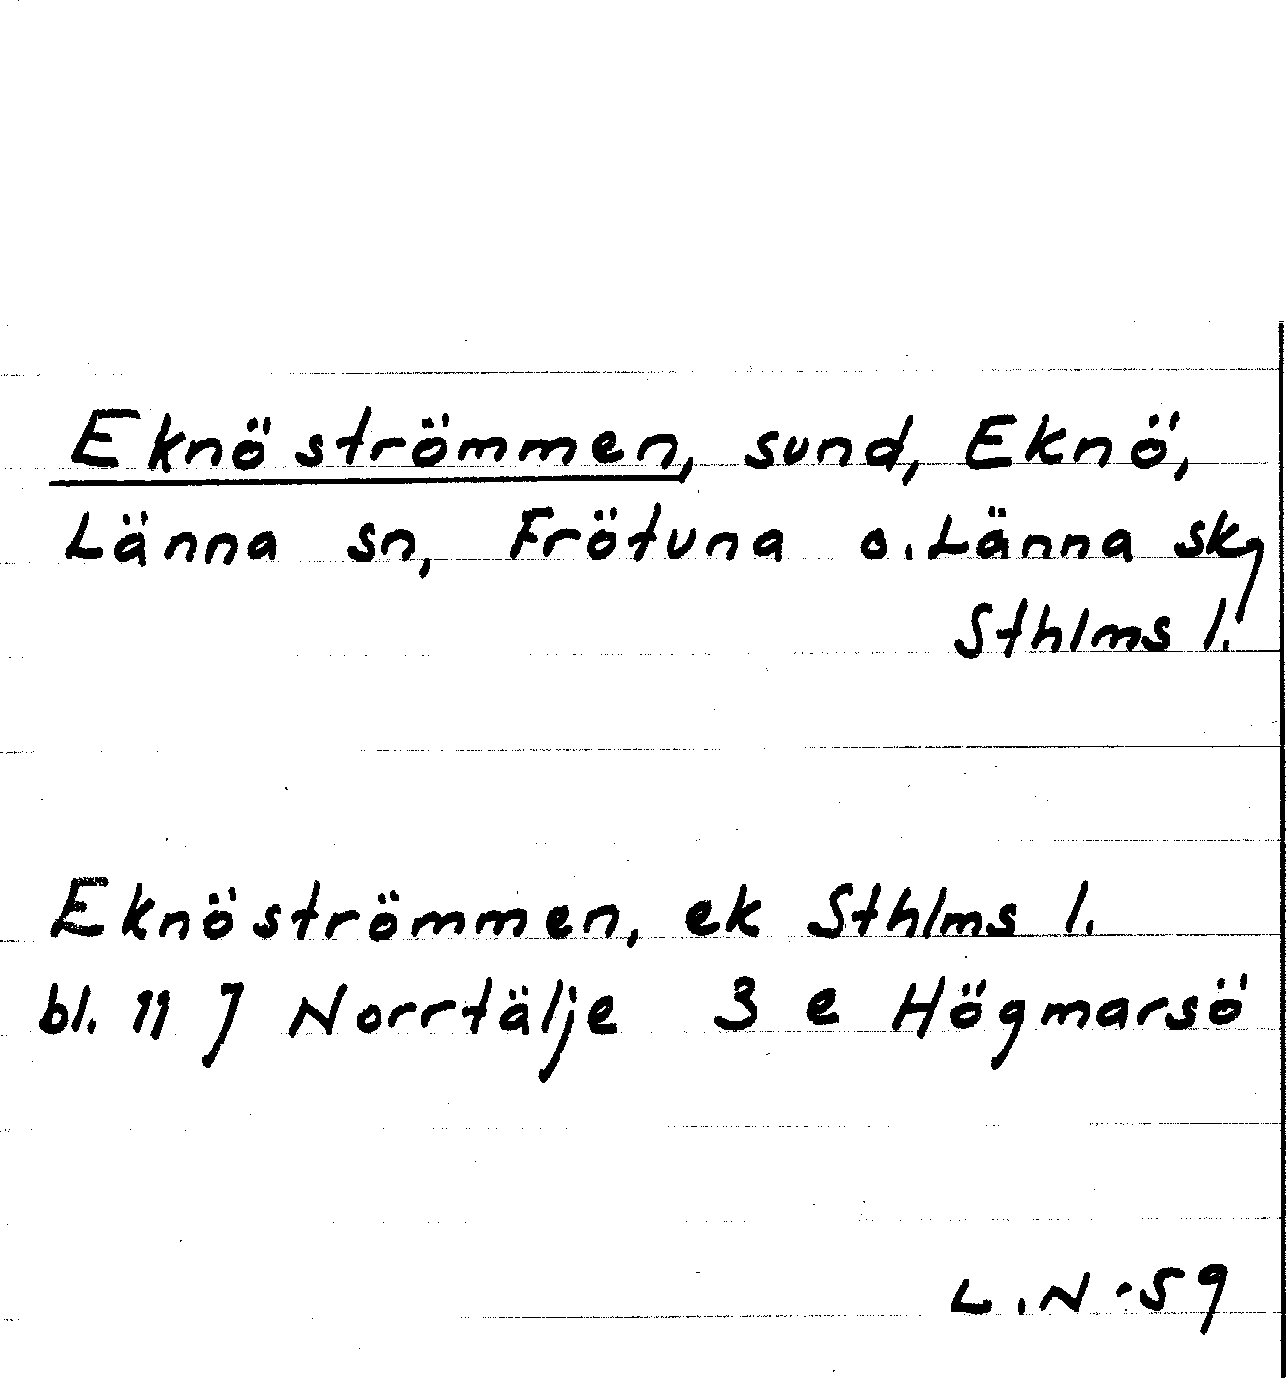 Eknöströmmen, sund, Eknö,
Länna sn, Frötuna o. Länna sk,
Sthlms l.
Eknöströmmen, ek Sthlms l.
bl. 11 J Norrtälje 3 e Högmarsö
L.N -59